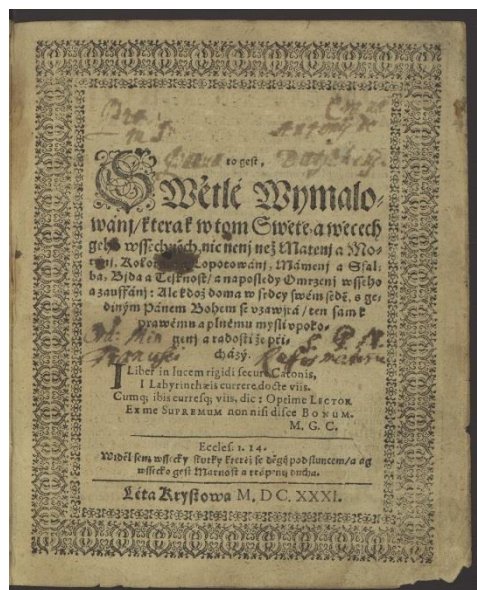 to gest,
Swětlé Wymalo-
wánj/ kterak w tom Swětě, a wěcech
geho wssechněch, nic nenj než Matenj a Mo-
tánj, Kolotánj Lopotowánj, Mámenj a Sſal-
ba, Bjda a Teſknoſt/ a napoſledy Omrzenj wſſeho
a zauffánj: Ale kdož doma w ſrdcy ſwém ſedě, s ge-
diným Pánem Bohem ſe vzawjrá/ ten ſám k
prawému a plnému myſli vpoko-
genj a radoſti že při-
cházý.
I Liber in lucem rigidi secure Catonis,
I Labyrinthæis currere docte viis.
Cumq; ibis curresq; viis, dic: Optime LECTOR
Ex me SUPREMUM non nisi disce BONUM.
M. G. C.
Eccles. 1. 14.
Widěl ſem wſſecky ſkutky kteréž ſe děgj pod ſluncem/ a ag
wſſecko geſt Marnoſt a trápenj ducha.
Léta Kryſtowa M, DC. XXXI.